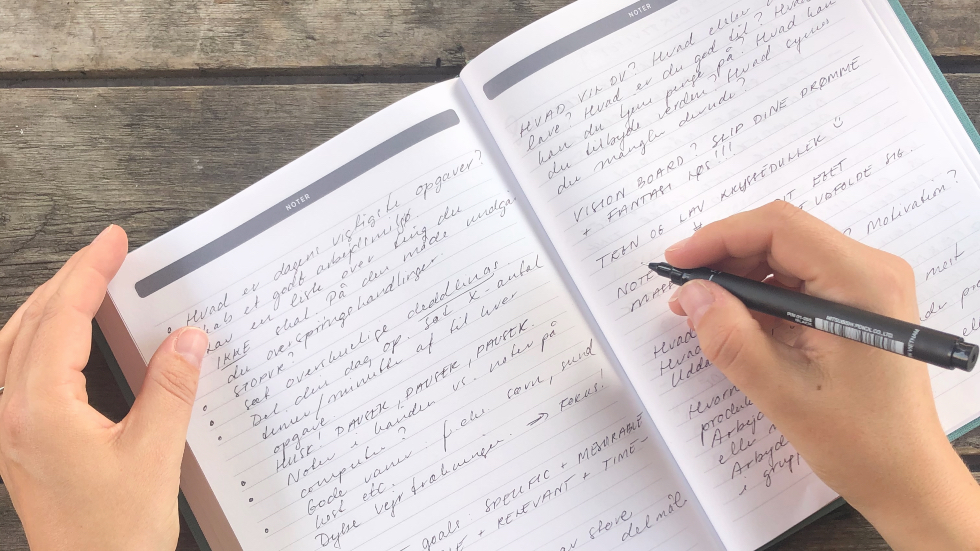 NOTER
Hvad er dagens vigtigste opgaver?
Skab et godt arbejdsmiljø.
Lav en liste over ting du
IKKE skal. På den måde undgår
du overspringshandlinger.
STORVK?
Sæt overskuelige deadlines.
Del din dag op. Sæt X-antal
timer/minutter af til hver
opgave
HUSK! PAUSER, PAUSER, PAUSER.
Noter i hånden vs. noter på
computer?
Gode vaner f.eks. søvn, sund
kost etc.
Dybe vejrtrækninger. → FOKUS!
goals: SPECIFIC + MEASURABLE
+ RELEVANT + TIME-
store
delmål
NOTER
HVAD VIL DU? Hvad elsker
lave? Hvad er du god til? Hvad
kan du tjene penge på? Hvad kan
du tilbyde verden? Hvad synes
du mangler derude?
VISION BOARD? SLIP DINE DRØMME
+ FANTASI LØS!!!
TRÆN OG LAV KRUSEDULLER ☺
DIT EGET
UDFOLDE SIG.
NOT
? Motivation?
mest
Hvad
Hvad du
Udda
Hvorn
produk
Arbejd
eller
Arbejd
i grupp
MITSUBISHI PENCIL CO. LTD.